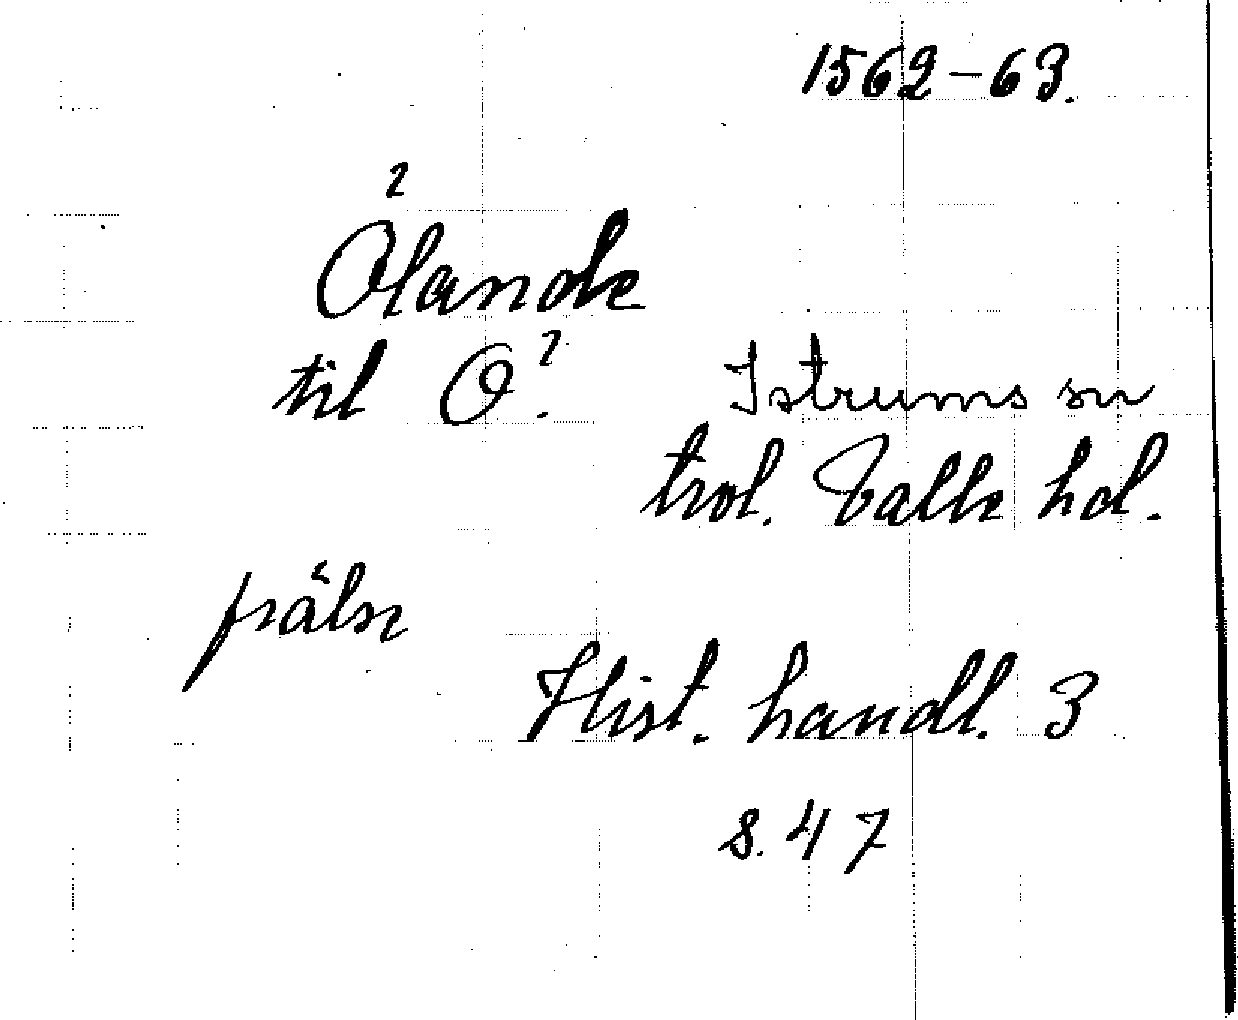 1562-63.
Ölande
til Ö. Istrums sn
trol. Valle hd.
frälse
Hist. handl. 3
s. 47